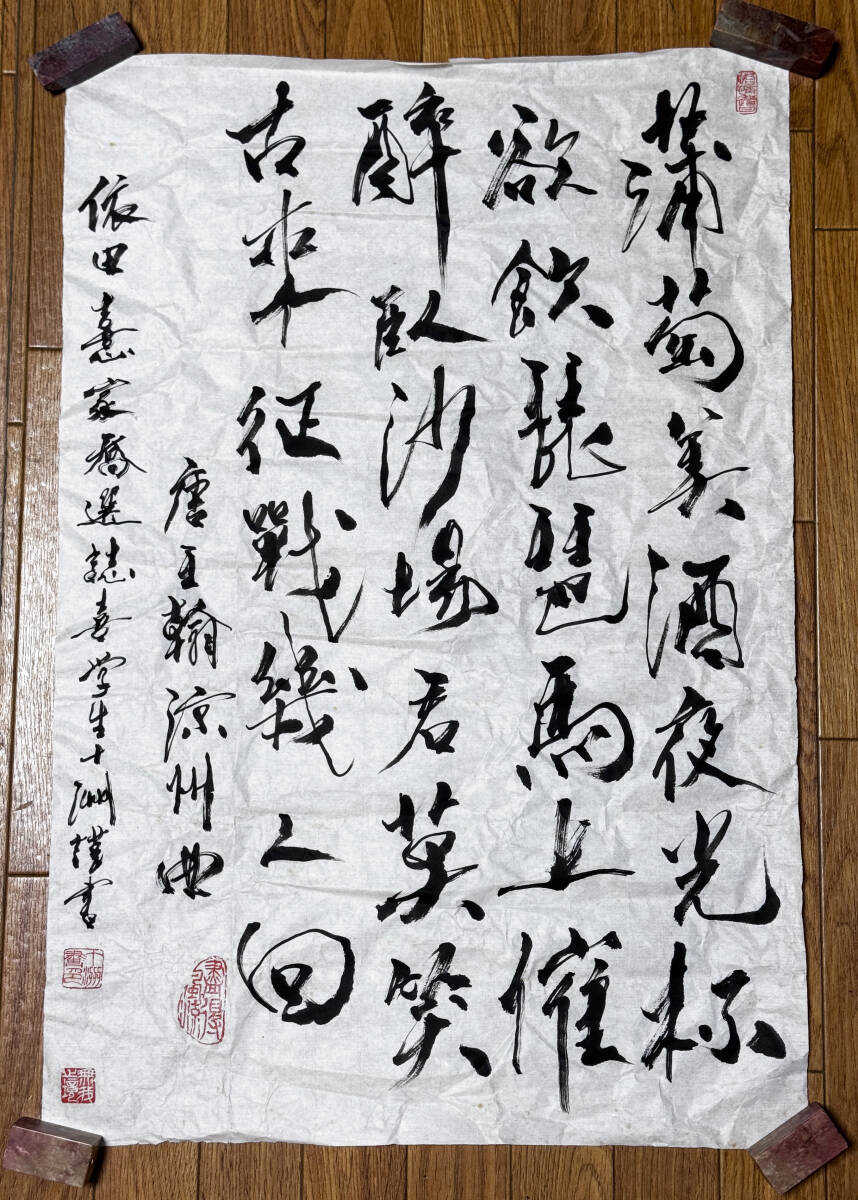 蒲萄美酒夜光杯
欲飲琵琶馬上催
醉臥沙場君莫笑
古來征戰幾人回
唐王翰涼州曲
依田憙家喬選誌喜学生十洲謹書